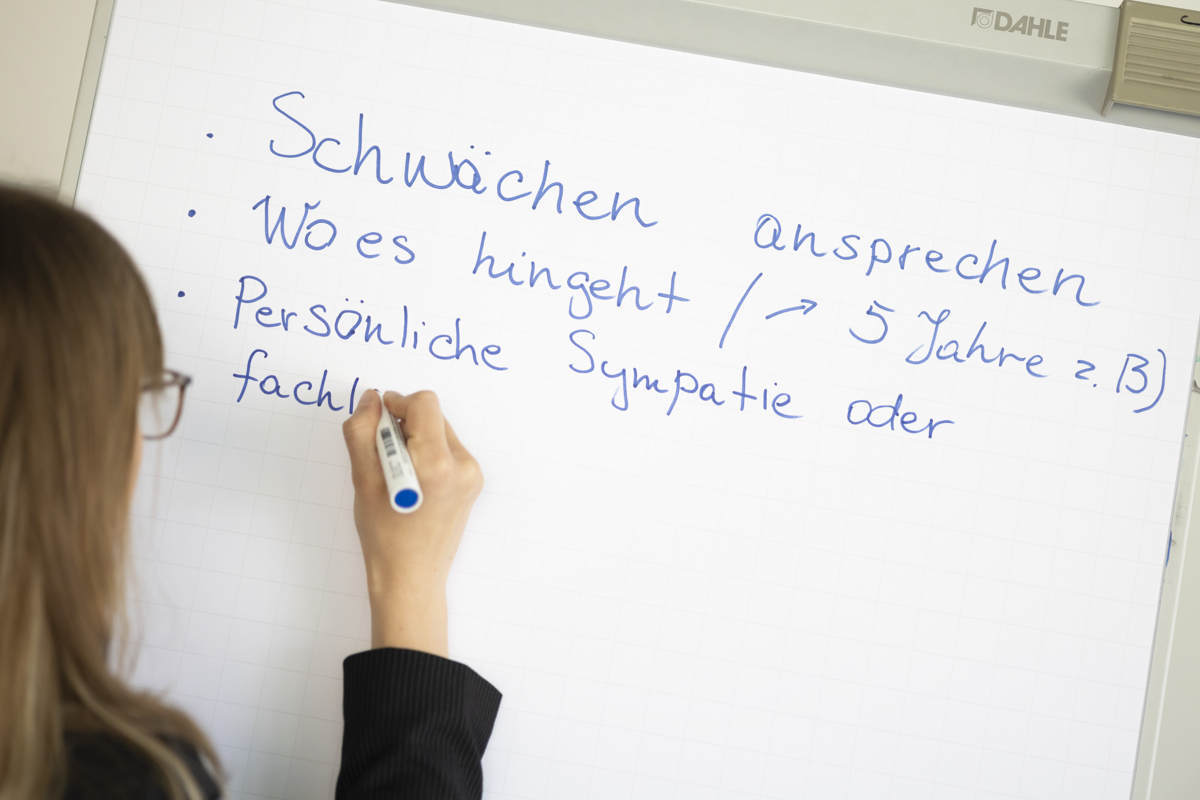 DAHLE
· Schwächen ansprechen
· Wo es hingeht / → 5 Jahre z. B)
· Persönliche Sympatie oder
fachl